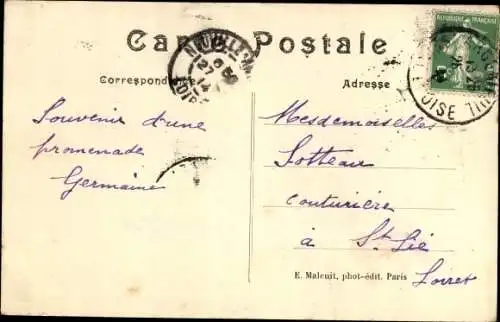 Carte Postale
Correspondance
Adresse
REPUBLIQUE FRANÇAISE
NEUVILLE
27
6
14
OISE
Souvenir d'une
promenade
Germaine
Mesdemoiselles
Sotteau
couturière
à St Lié
Loiret
E. Malcuit, phot-édit. Paris